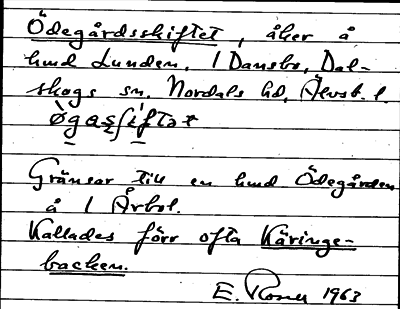 Ödegårdsskiftet, åker å
hmd Lunden. 1 Dansbo, Dal-
skogs sn. Nordals hd, Älvsb. l.
Gränsar till en hmd Ödegården
å 1 Årbol.
Kallades förr ofta Käringe-
backen.
E. Rosen 1963